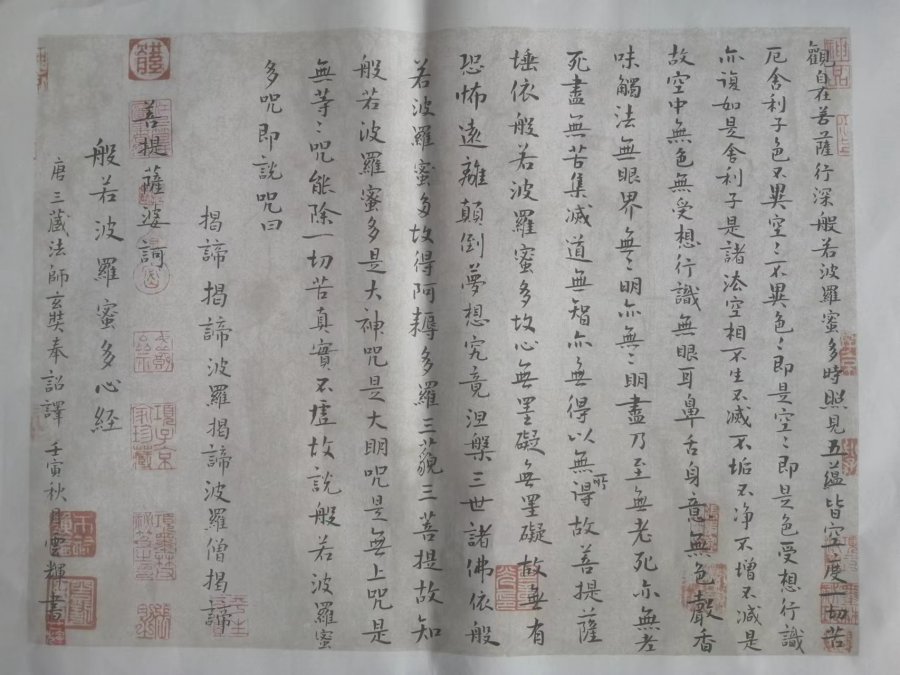 觀自在菩薩行深般若波羅蜜多時照見五蘊皆空度一切苦
厄舍利子色不異空〻不異色〻即是空〻即是色受想行識
亦復如是舍利子是諸法空相不生不滅不垢不净不增不減是
故空中無色無受想行識無眼耳鼻舌身意無色聲香
味觸法無眼界無〻明亦無〻明盡乃至無老死亦無老
死盡無苦集滅道無智亦無得以無所得故菩提薩
埵依般若波羅蜜多故心無罣礙無罣礙故無有
恐怖遠離顛倒夢想究竟涅槃三世諸佛依般
若波羅蜜多故得阿耨多羅三藐三菩提故知
般若波羅蜜多是大神咒是大明咒是無上咒是
無等〻咒能除一切苦真實不虛故説般若波羅蜜
多咒即説咒曰
揭諦揭諦波羅揭諦波羅僧揭諦
菩提薩婆訶
般若波羅蜜多心经
唐三蔵法師玄奘奉詔譯 壬寅秋月雲輝書